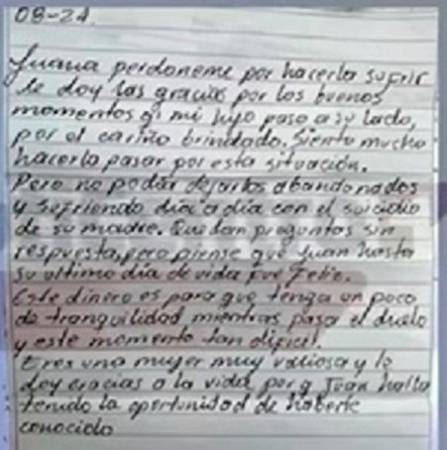 08-24.
Juana perdoneme por hacerla sufrir
le doy las gracias por los buenos
momentos q' mi hijo paso a su lado,
por el cariño brindado. Siento mucho
hacerla pasar por esta situación.
Pero no podia dejarlos abandonados
y sufriendo dia a dia con el suicidio
de su madre. Quedan preguntas sin
respuesta, pero piense que Juan hasta
su ultimo dia de vida fue Feliz.
Este dinero es para que tenga un poco
de tranquilidad mientras pasa el duelo
y este momento tan dificil.
Eres una mujer muy valiosa y le
doy gracias a la vida porq Juan halla
tenido la oportunidad de haberte
conocido